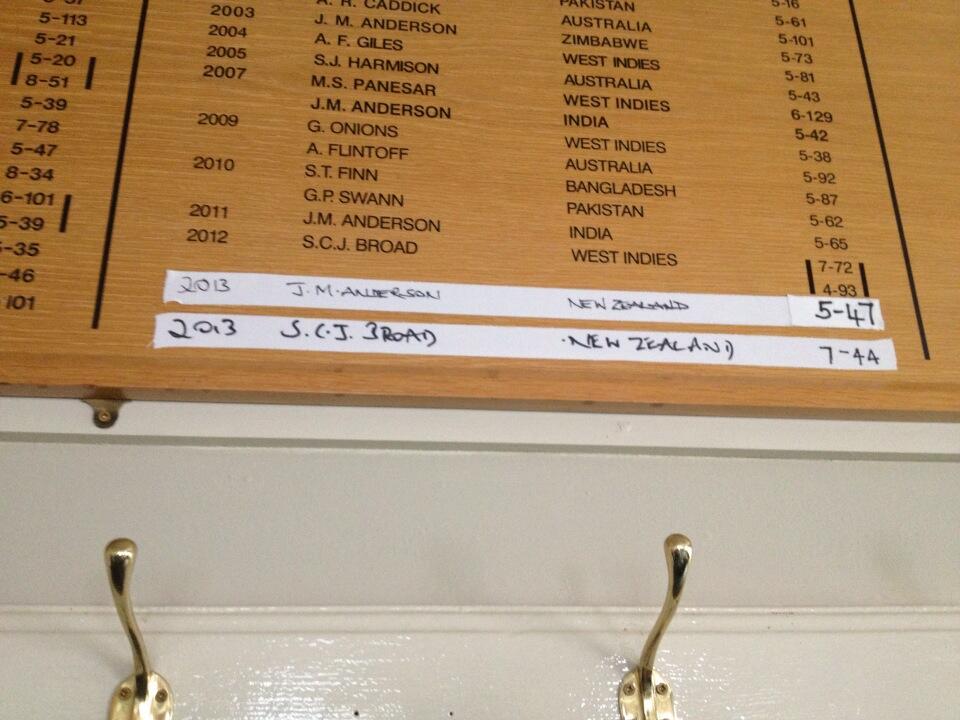 5-113
5-21
5-20
8-51
5-39
7-78
5-47
8-34
6-101
5-39
-35
-46
101
5-16
PAKISTAN 5-61
A. R. CADDICK AUSTRALIA 5-101
2003 J. M. ANDERSON ZIMBABWE 5-73
2004 A. F. GILES WEST INDIES 5-81
2005 S.J. HARMISON AUSTRALIA 5-43
2007 M.S. PANESAR WEST INDIES 6-129
J.M. ANDERSON INDIA 5-42
2009 G. ONIONS WEST INDIES 5-38
A. FLINTOFF AUSTRALIA 5-92
2010 S.T. FINN BANGLADESH 5-87
G.P. SWANN PAKISTAN 5-62
2011 J.M. ANDERSON INDIA 5-65
2012 S.C.J. BROAD WEST INDIES 7-72
4-93
2013 J.M.ANDERSON NEW ZEALAND 5-47
2013 S.C.J. BROAD NEW ZEALAND 7-44